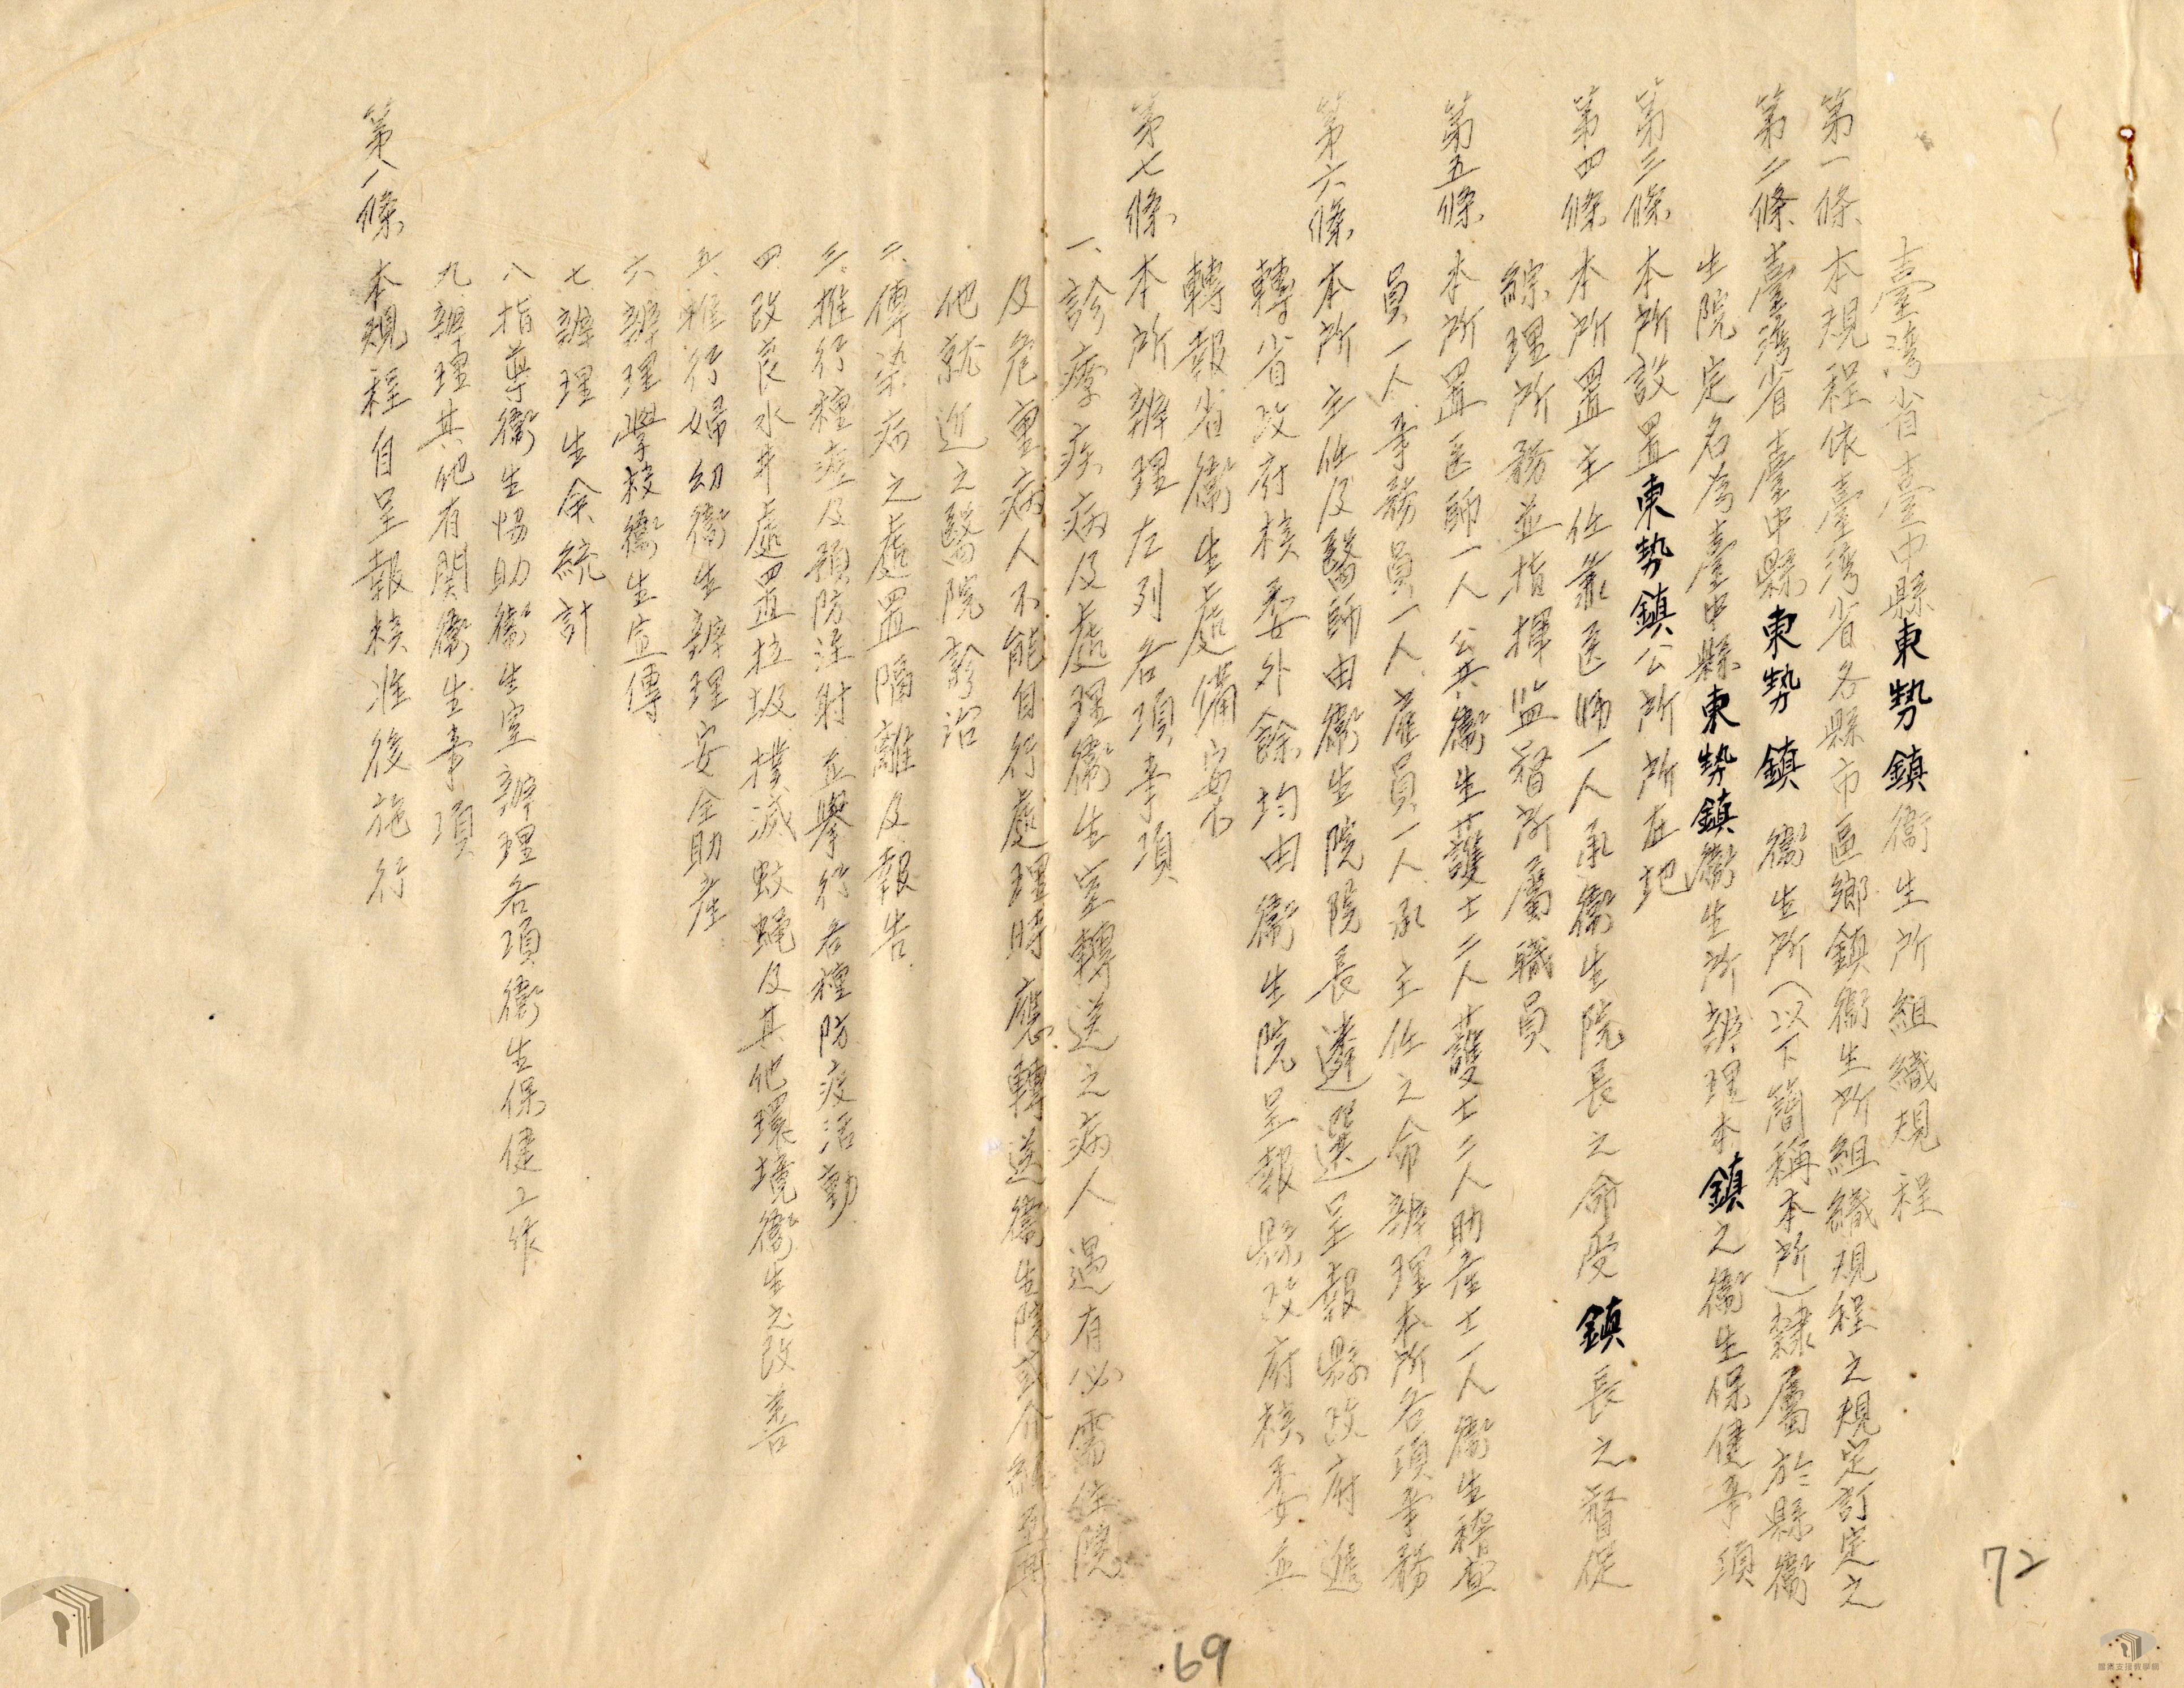 臺灣省臺中縣東勢鎮衛生所組織規程
第一條 本規程依臺灣省各縣市區鄉鎮衛生所組織規程之規定訂定之
第二條 臺灣省臺中縣東勢鎮衛生所(以下簡稱本所)隸屬於縣衛
生院定名為臺中縣東勢鎮衛生所辦理本鎮之衛生保健事項
第三條 本所設置東勢鎮公所所在地
第四條 本所置主任兼医师一人承衛生院長之命受鎮長之督促
綜理所務並指揮監督所屬職員
第五條 本所置医師一人公共衛生護士二人護士二人助産士一人衛生稽查
員一人事務員一人雇員一人承主任之命辦理本所各項事務
第六條 本所主任及醫師由衛生院院長遴選呈報縣政府遞
轉省政府核委外餘均由衛生院呈報縣政府核委並
轉報省衛生處備案
第七條 本所辦理左列各項事項
一、診療疾病及處理衛生室轉送之病人遇有必需住院
及危重病人不能自行處理時應轉送衛生院或介紹至其
他就近之醫院診治
二、傳染病之處置隔離及報告
三、推行種痘及預防注射並舉行各種防疫活動
四、改良水井處置垃圾撲滅蚊蝇及其他環境衛生之改善
五、推行婦幼衛生辦理安全助産
六、辦理學校衛生宣傳
七、辦理生命統計
八、指導衛生協助衛生室辦理各項衛生保健工作
九、辦理其他有関衛生事項
第八條 本規程自呈報核准後施行
72
69
檔案支援教學網